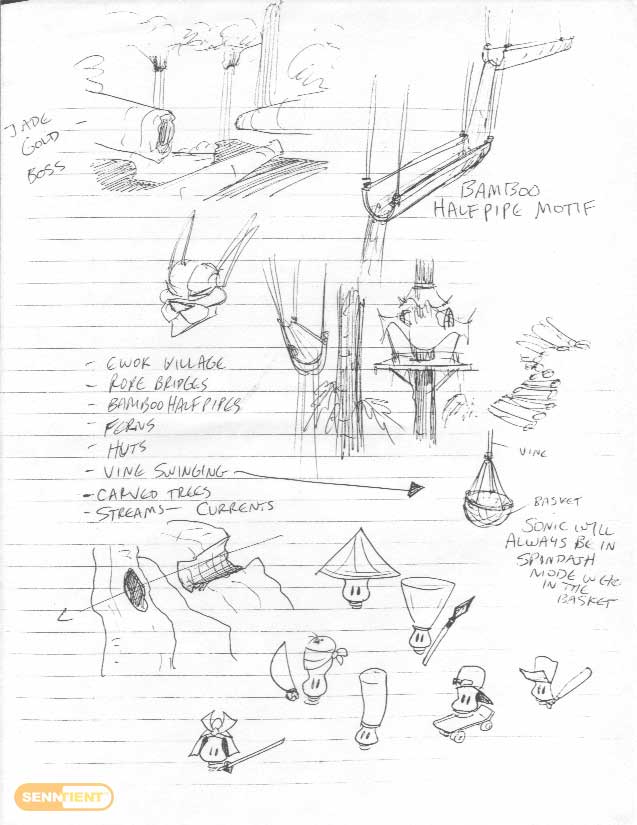 JADE
GOLD
BOSS
BAMBOO
HALFPIPE MOTIF
- EWOK VILLAGE
- ROPE BRIDGES
- BAMBOO HALFPIPES
- FERNS
- HUTS
- VINE SWINGING
- CARVED TREES
- STREAMS - CURRENTS
VINE
BASKET
SONIC WILL
ALWAYS BE IN
SPINDASH
MODE WHEN
IN THE
BASKET
SENNTIENT